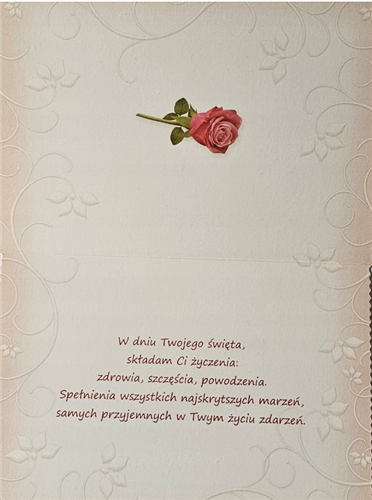 W dniu Twojego święta,
składam Ci życzenia:
zdrowia, szczęścia, powodzenia.
Spełnienia wszystkich najskrytszych marzeń,
samych przyjemnych w Twym życiu zdarzeń.